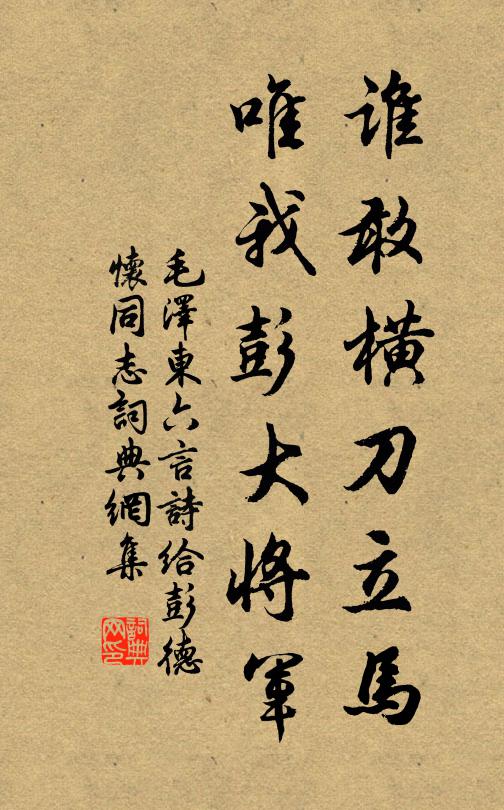 誰敢橫刀立馬
唯我彭大將軍
毛澤東六言詩給彭德
懷同志詞典網集
詞典
网印